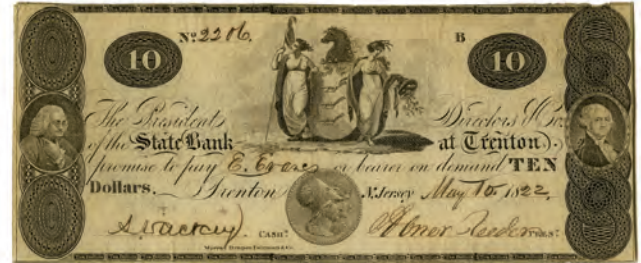 No. 2206. B
10 10
The President, Directors & Co.
of the State Bank at Trenton
promise to pay E. Evans or bearer on demand TEN
Dollars. Trenton N. Jersey May 10 1822
CASHr. Abner Reeder PRESt.